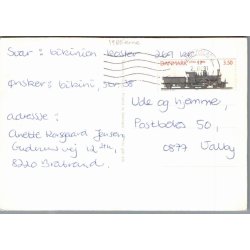 Svar: bikinien koster 269 kr.
Ønsker: bikini str. 38
adresse:
Anette Korsgaard Jensen
Gudrunsvej 12
8220 Brabrand.
DANMARK
3.50
Ude og hjemme,
Postboks 50,
0877 Valby